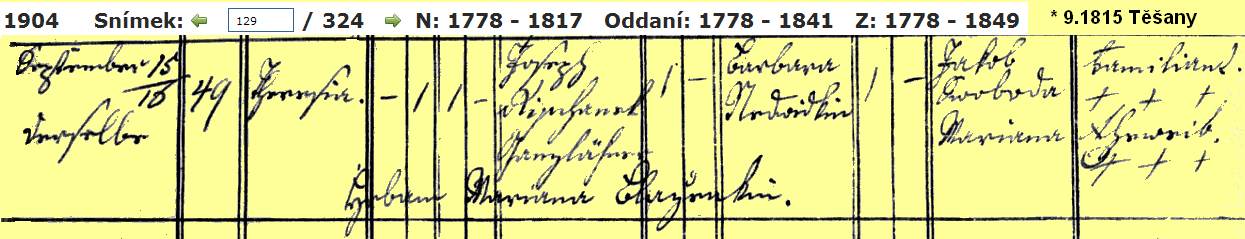 1904 Snímek: 129 / 324 N: 1778 - 1817 Oddaní: 1778 - 1841 Z: 1778 - 1849 * 9.1815 Těšany
September 15
15
derselbe
49
Theresia.
- 1 1 -
Joseph
Ganzlähner
1 -
Barbara
Nedwidkin
1 -
Jakob
Swoboda
Mariana
Familiant.
+ + +
Eheweib.
+ + +
Hebam Mariana Blazenkin.